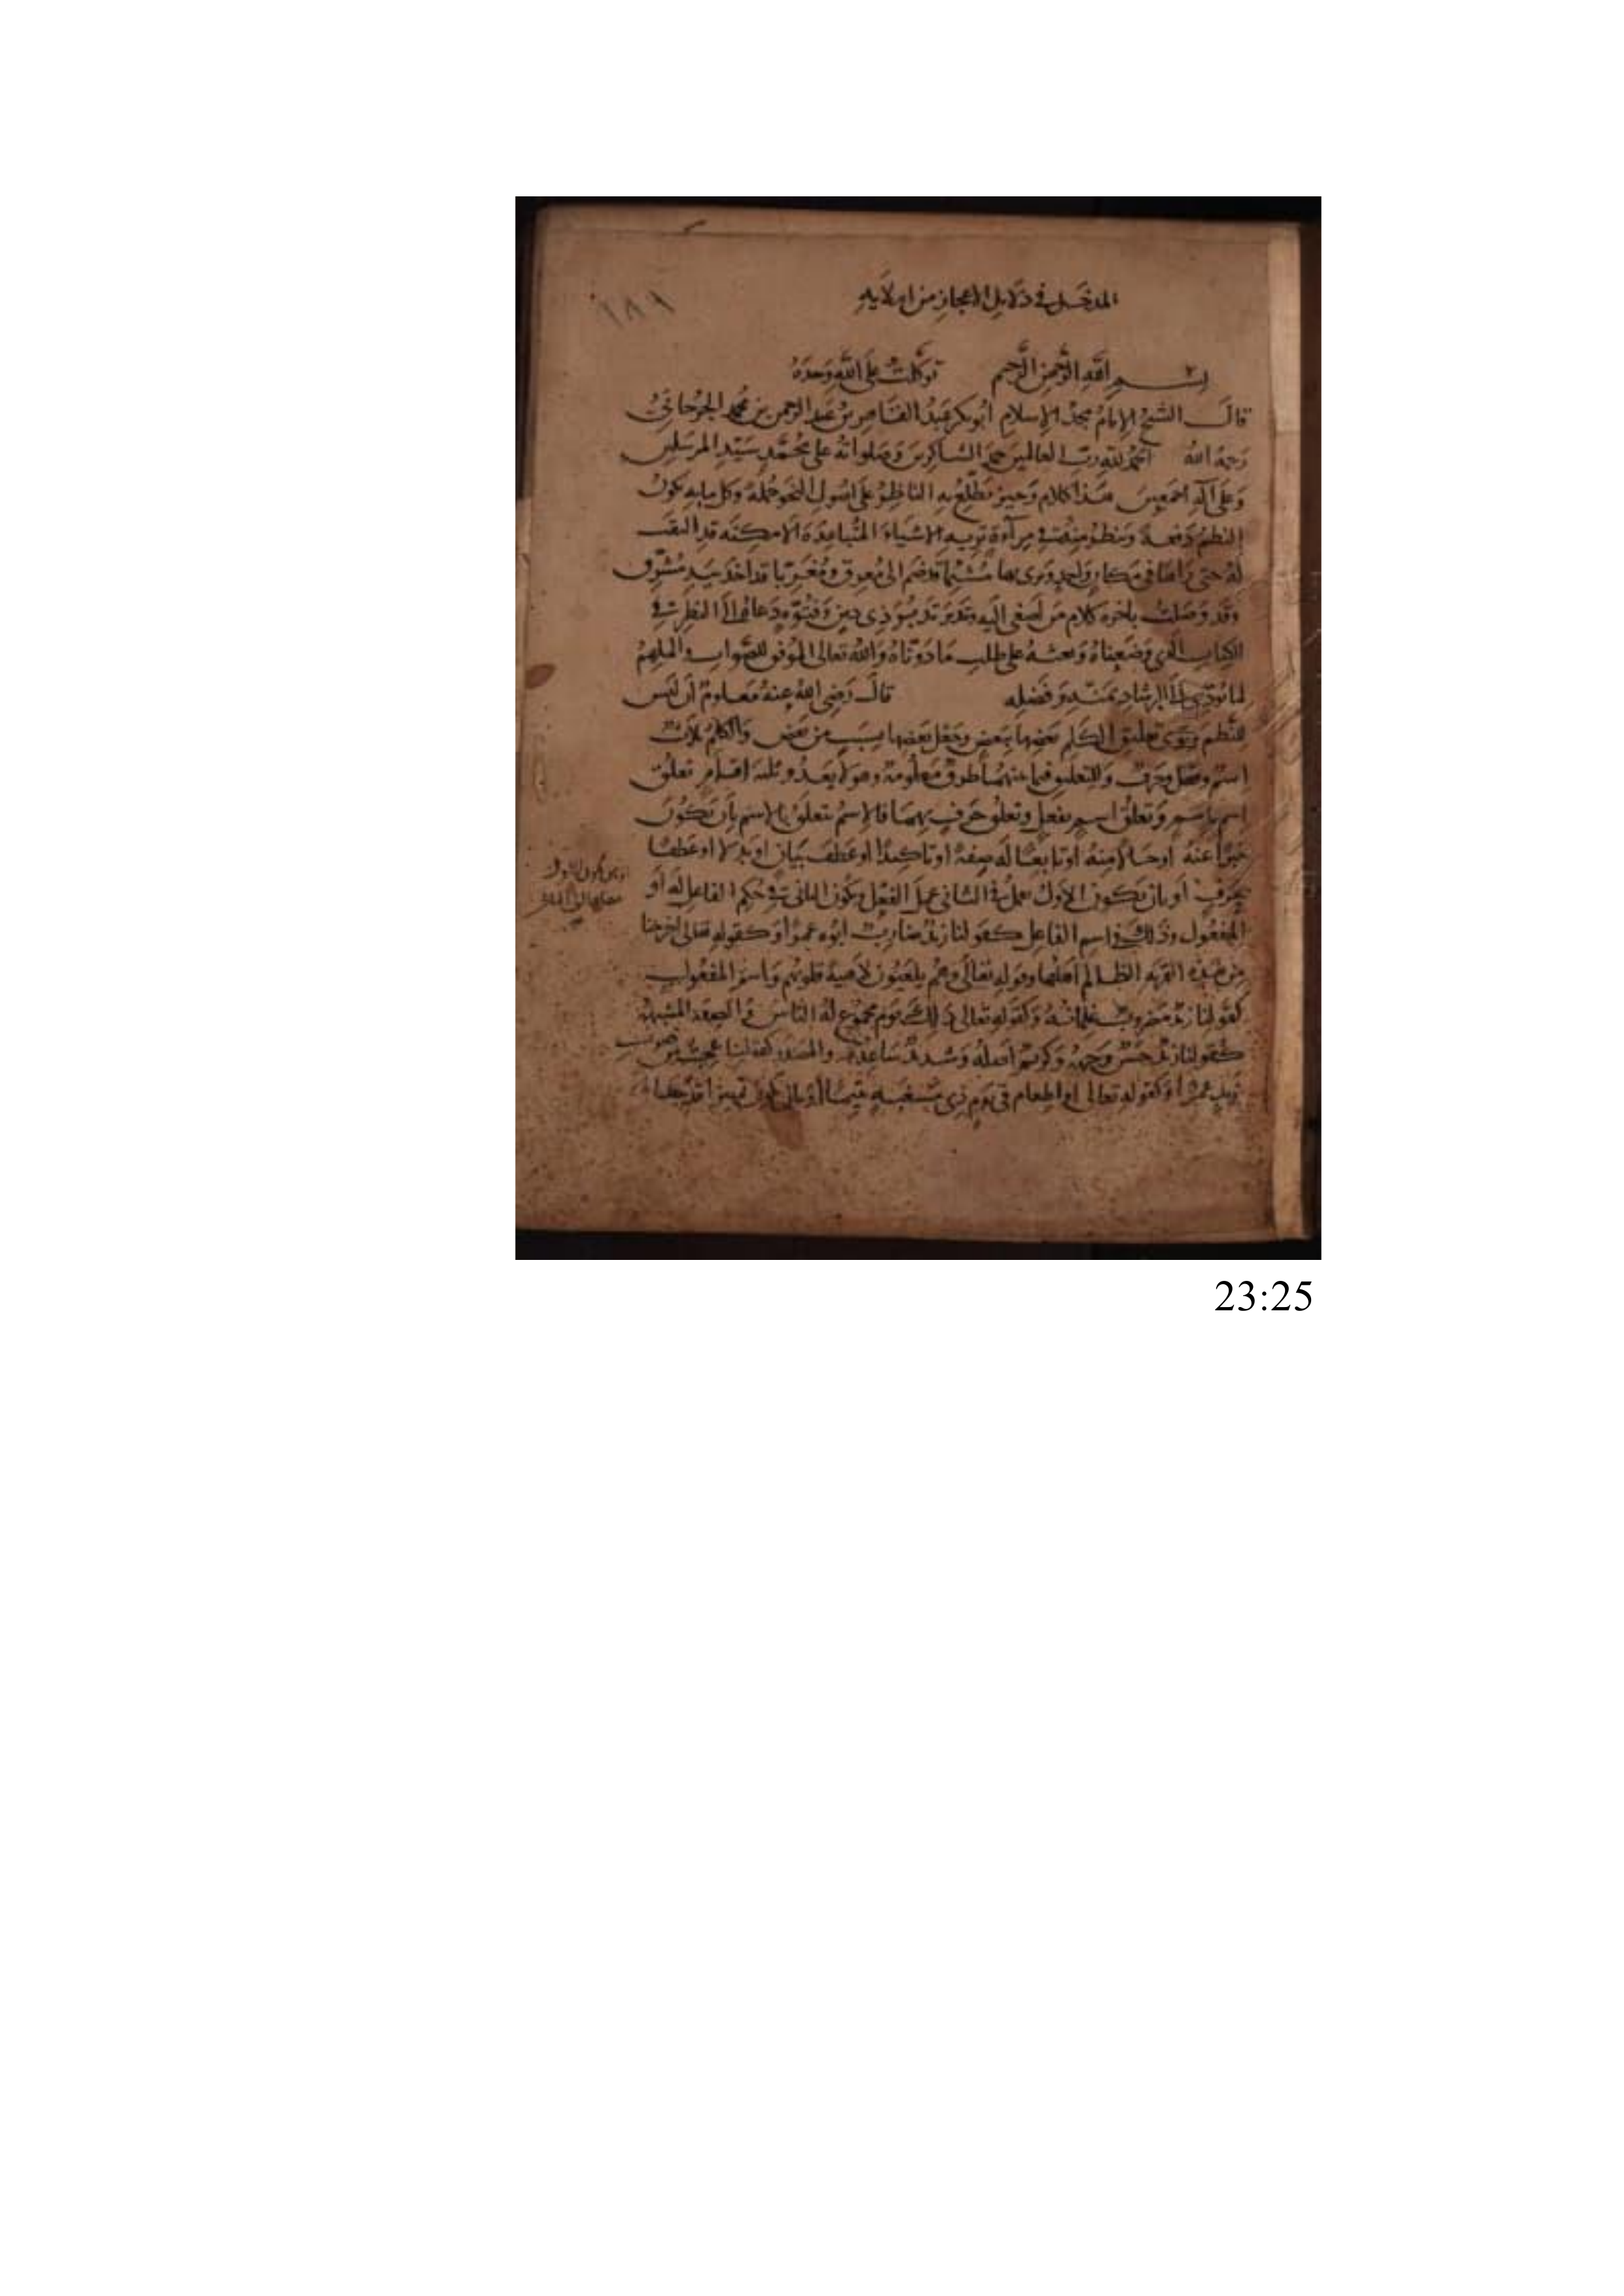 المدخل في دلايل الاعجاز من املايه
١٨٩
بسم الله الرحمن الرحيم توكلت على الله وحده
قال الشيخ الإمام مجد الإسلام أبو بكر عبد القاهر بن عبد الرحمن بن محمد الجرجاني
رحمه الله الحمد لله رب العالمين حمد الشاكرين وصلواته على محمد سيد المرسلين
وعلى آله اجمعين هذا كلام وجيز يطلع به الناظر على اصول النحو جملة وكل ما به يكون
النظم دفعة وينظر منه في مرآة تريه الاشياء المتباعدة الامكنة قد التقت
له حتى رآها في مكان واحد ويرى بها مشئما قد ضم الى معرق ومغربا قد اخذ بيد مشرق
وقد وصلت بأخرة كلام من اصغى اليه وتدبر تدبر ذي دين وفتوة دعاه الى النظر في
الكتاب الذي وضعناه وبعثه على طلب ما دوناه والله تعالى الموفق للصواب والملهم
لما يؤدي الى الرشاد بمنه وفضله قال رضي الله عنه معلوم أن ليس
للنظم سوى تعليق الكلم بعضها ببعض وجعل بعضها بسبب من بعض والكلم ثلاث
اسم وفعل وحرف وللتعليق فيما بينها طرق معلومة وهو لا يعدو ثلثة اقسام تعلق
اسم باسم وتعلق اسم بفعل وتعلق حرف بهما فالاسم يتعلق بالاسم بأن يكون
خبرا عنه أو حالا منه أو تابعا له صفة أو تاكيدا او عطف بيان او بدلا او عطفا
بحرف أو بأن يكون الأول يعمل في الثاني عمل الفعل ويكون الثاني في حكم الفاعل له أو
المفعول وذلك في اسم الفاعل كقولنا زيد ضارب ابوه عمرا وكقوله تعالى اخرجنا
من هذه القرية الظالم أهلها وقوله تعالى وهم يلعبون لاهية قلوبهم واسم المفعول
كقولنا زيد مضروب غلمانه وكقوله تعالى ذلك يوم مجموع له الناس والصفة المشبهة
كقولنا زيد حسن وجهه وكريم أصله وشديد ساعده والمصدر كقولنا عجبت من ضرب
زيد عمرا وكقوله تعالى او اطعام في يوم ذي مسغبة يتيما
23:25